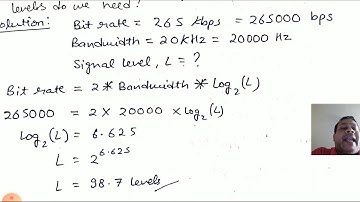 levels do we need?
Solution: Bit rate = 265 kbps = 265000 bps
Bandwidth = 20KHz = 20000 Hz
Signal level, L = ?
Bit rate = 2 * Bandwidth * log₂(L)
265000 = 2 × 20000 × log₂(L)
log₂(L) = 6.625
L = 2^6.625
L = 98.7 levels